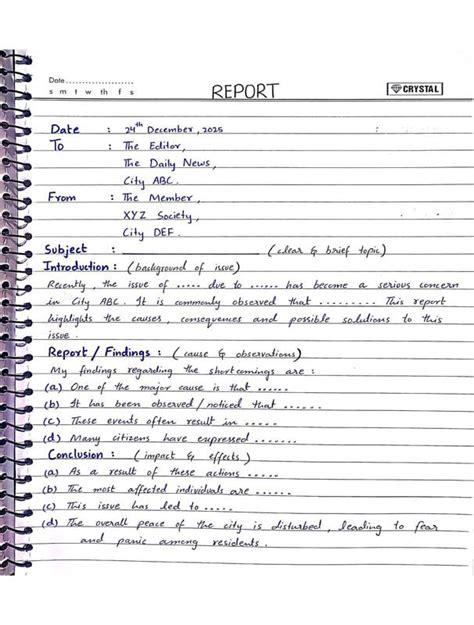 Date....................
s m t w th f s
CRYSTAL
REPORT
Date : 24th December, 2025
To : The Editor,
The Daily News,
City ABC.
From : The Member,
XYZ Society,
City DEF.
Subject : ____________________ (clear & brief topic)
Introduction : (background of issue)
Recently, the issue of ..... due to ...... has become a serious concern
in City ABC. It is commonly observed that .......... This report
highlights the causes, consequences and possible solutions to this
issue.
Report / Findings : (cause & observations)
My findings regarding the shortcomings are :
(a) One of the major cause is that ......
(b) It has been observed / noticed that ......
(c) These events often result in .....
(d) Many citizens have expressed .......
Conclusion : (impact & effects)
(a) As a result of these actions .....
(b) The most affected individuals are ......
(c) This issue has led to .....
(d) The overall peace of the city is disturbed, leading to fear
and panic among residents.